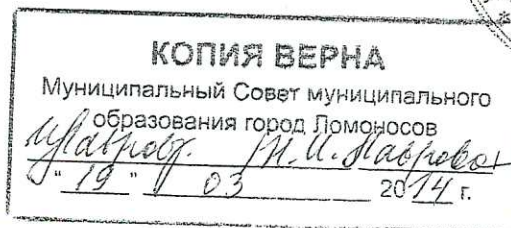 КОПИЯ ВЕРНА
Муниципальный Совет муниципального
образования город Ломоносов
Лаврова
" 19 " 03 2014 г.